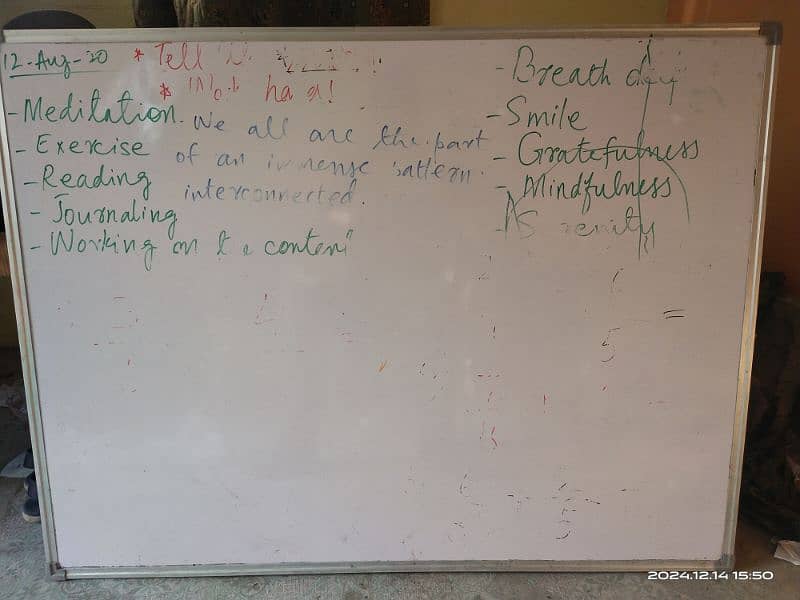 12-Aug-20
* Tell
*
- Meditation.
- Exercise
- Reading
- Journaling
- Working on content
We all are the part
of an immense pattern.
interconnected.
- Breath
- Smile
- Gratefulness
- Mindfulness
5
=
2024.12.14 15:50